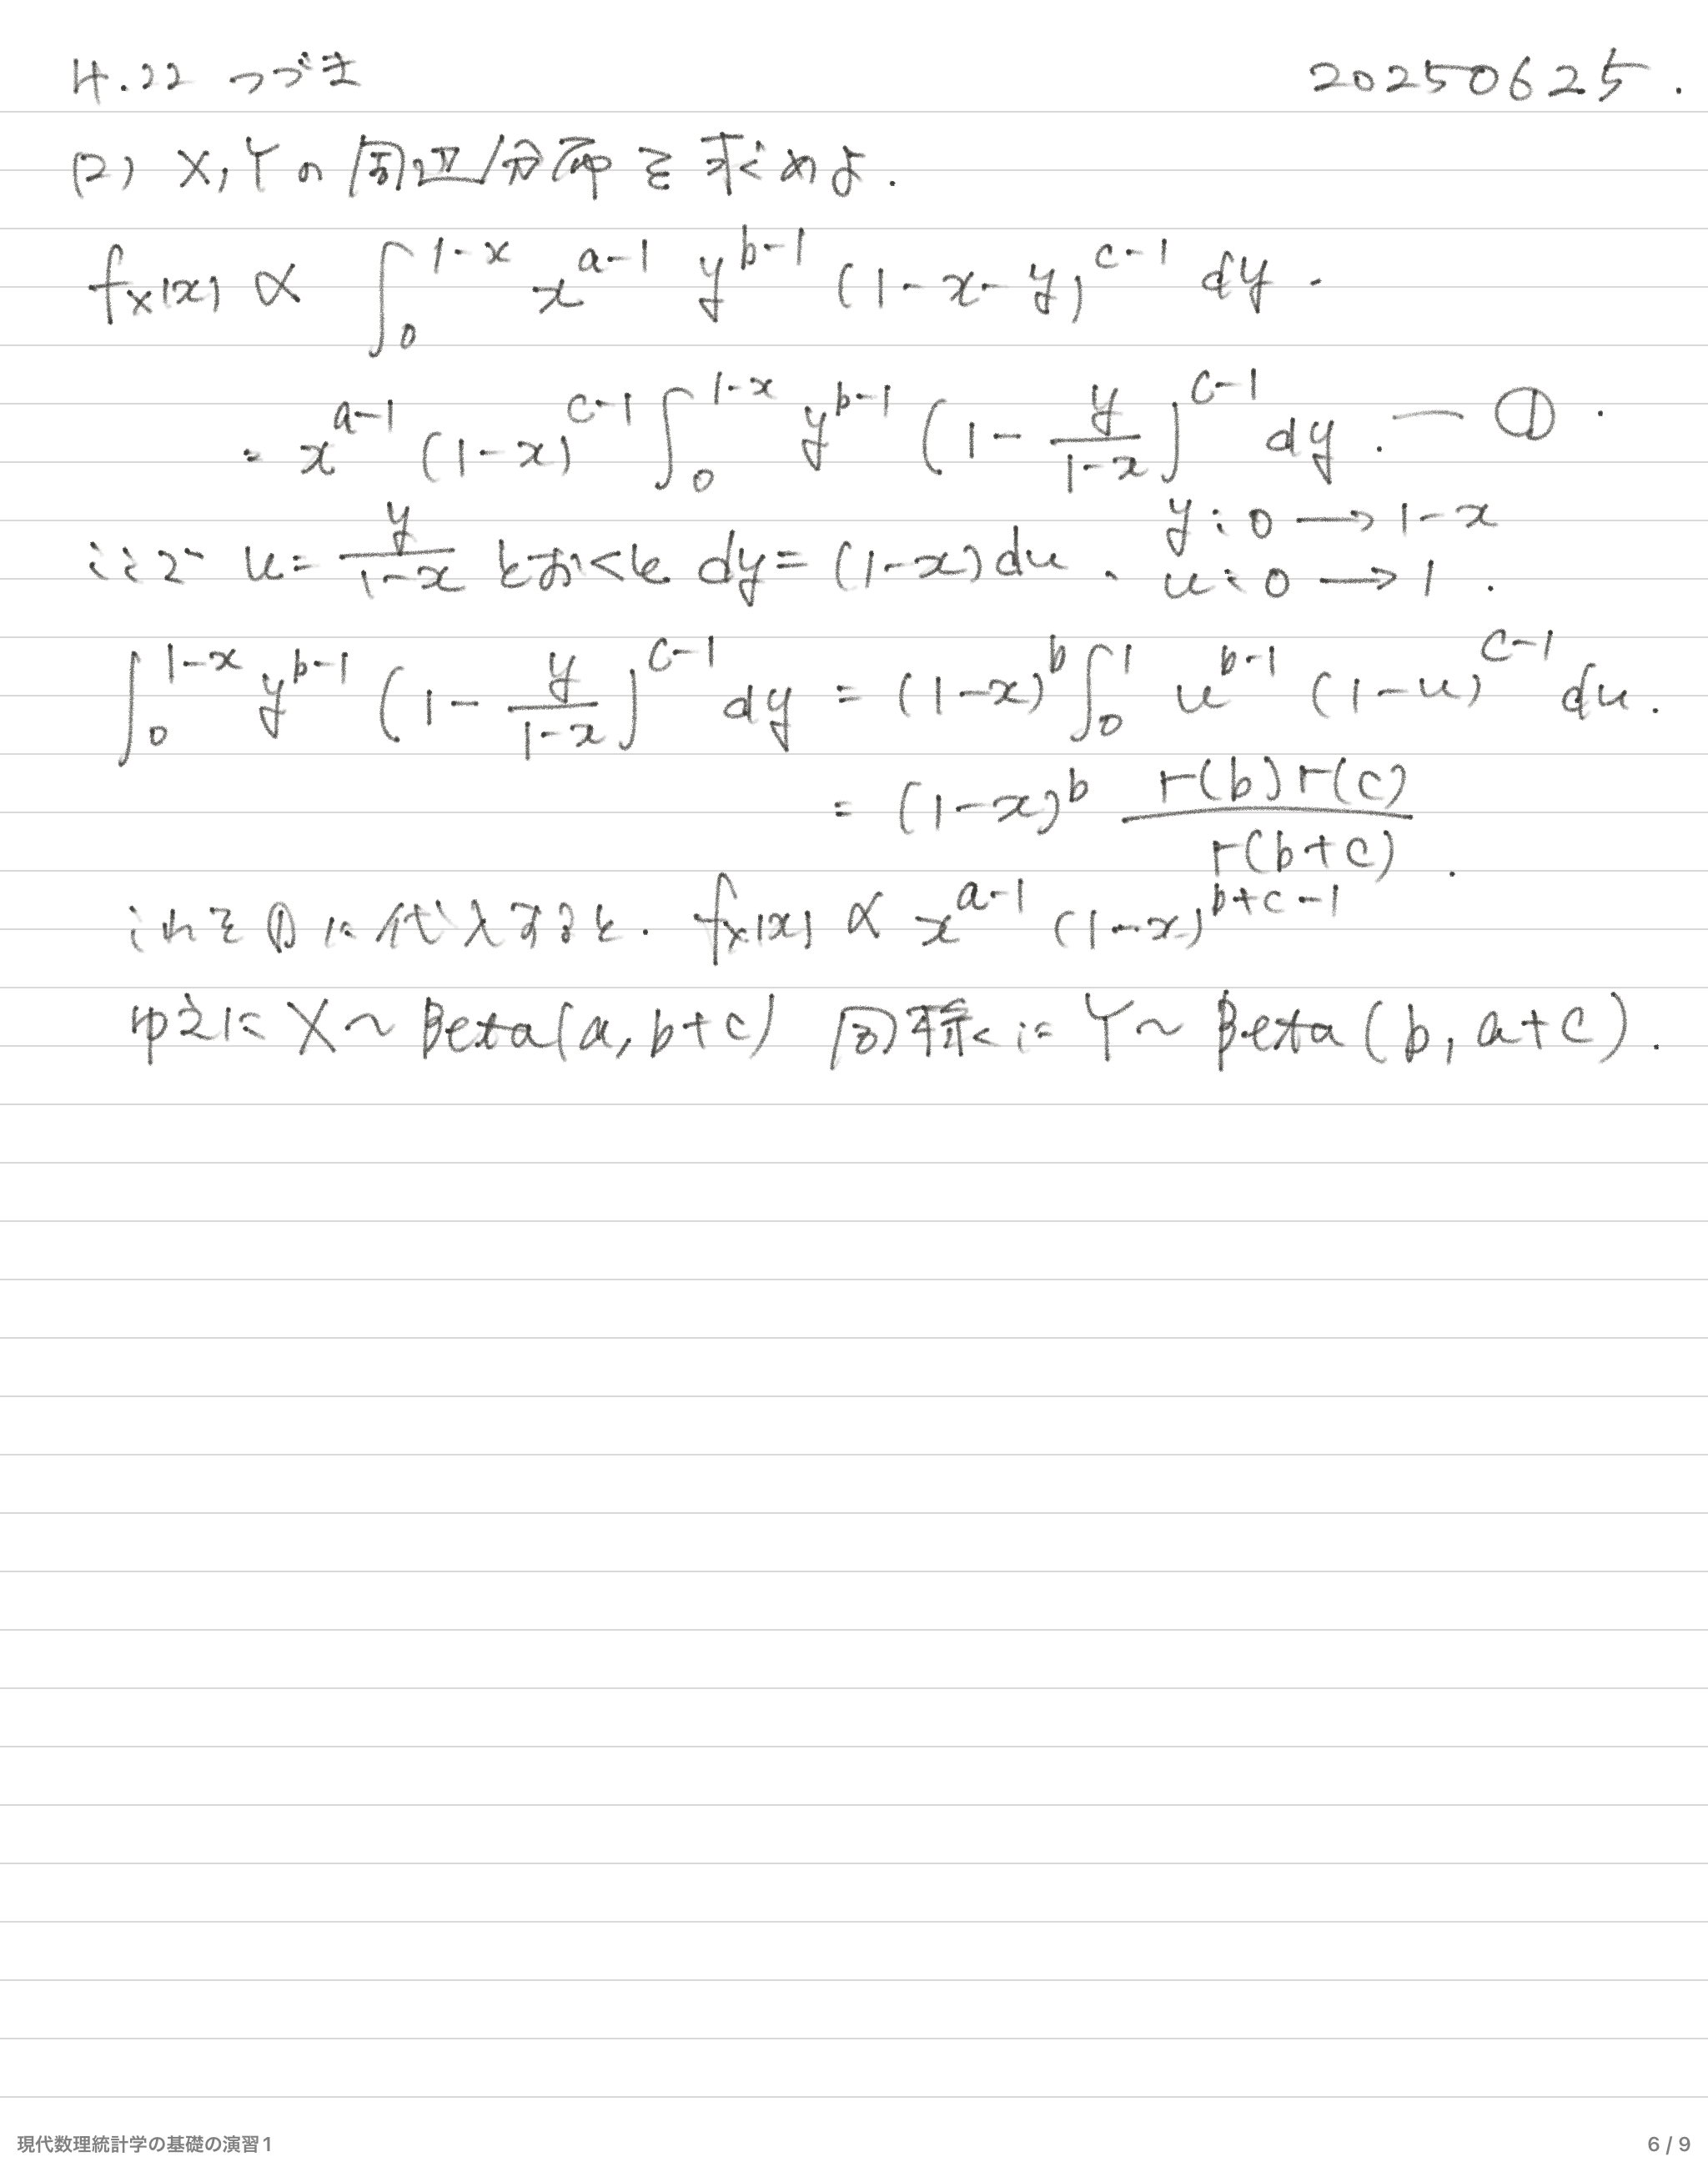 4.22 つづき 20250625.
(2) X, Y の周辺分布を求めよ.
f_X(x) ∝ ∫_0^{1-x} x^{a-1} y^{b-1} (1-x-y)^{c-1} dy.
= x^{a-1} (1-x)^{c-1} ∫_0^{1-x} y^{b-1} (1 - \frac{y}{1-x})^{c-1} dy. — ①.
ここで u = \frac{y}{1-x} とおくと dy = (1-x) du. y: 0 → 1-x
u: 0 → 1.
∫_0^{1-x} y^{b-1} (1 - \frac{y}{1-x})^{c-1} dy = (1-x)^b ∫_0^1 u^{b-1} (1-u)^{c-1} du.
= (1-x)^b \frac{Γ(b)Γ(c)}{Γ(b+c)}.
これを①に代入すると. f_X(x) ∝ x^{a-1} (1-x)^{b+c-1}
ゆえに X ~ Beta(a, b+c) 同様に Y ~ Beta(b, a+c).
現代数理統計学の基礎の演習1 6 / 9